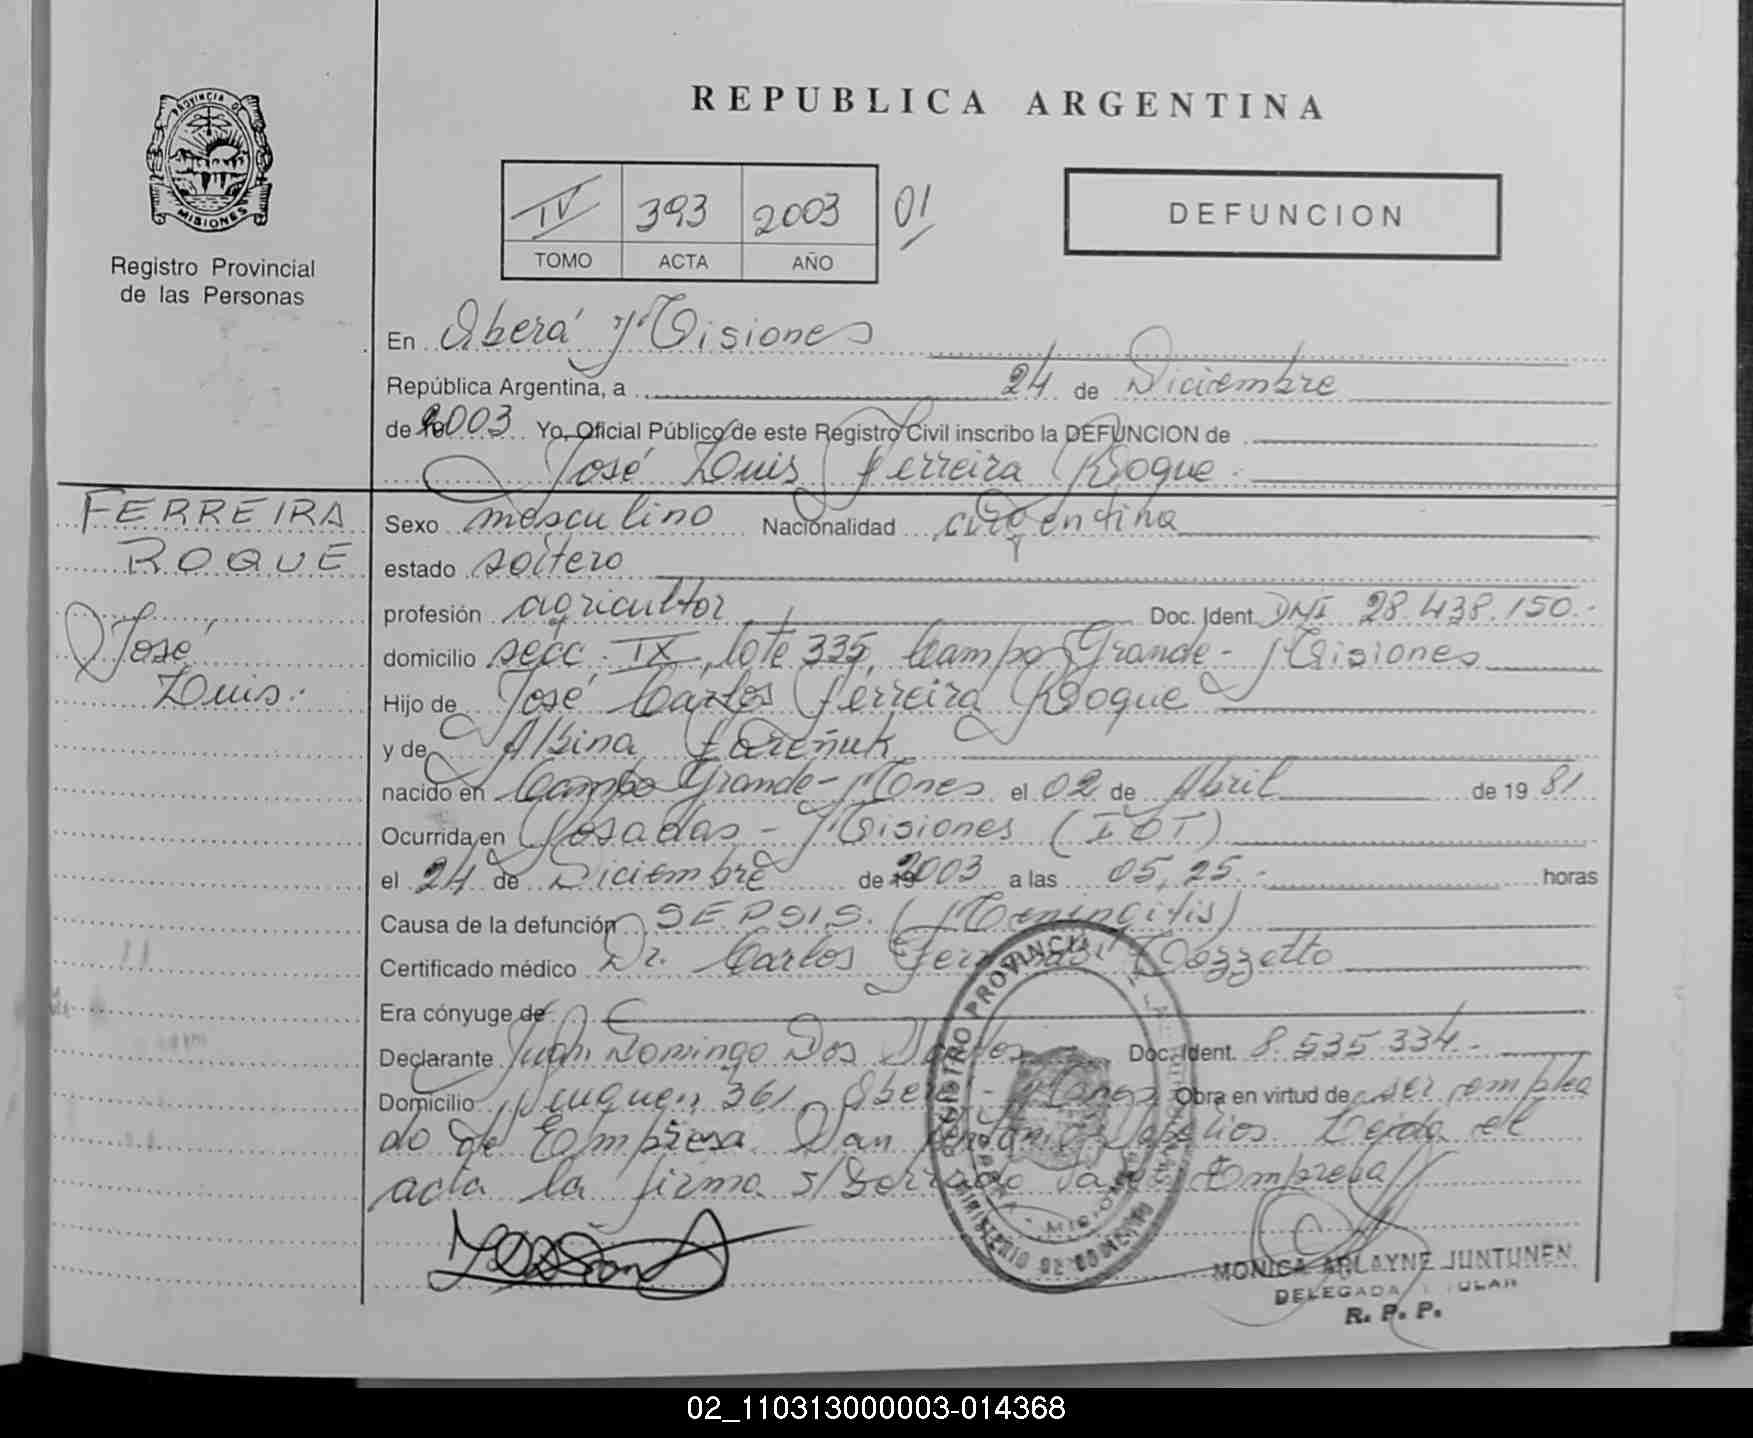 PROVINCIA DE
MISIONES
Registro Provincial
de las Personas
REPUBLICA ARGENTINA
IV 393 2003 01
TOMO ACTA AÑO
DEFUNCION
En Oberá Misiones
República Argentina, a 24 de Diciembre
de 2003 Yo, Oficial Público de este Registro Civil inscribo la DEFUNCION de
José Luis Ferreira Roque.
FERREIRA
ROQUE
José
Luis.
Sexo masculino Nacionalidad argentina
estado soltero
profesión agricultor Doc. Ident. DNI 28.438.150.-
domicilio secc. IX, lote 335, Campo Grande - Misiones
Hijo de José Carlos Ferreira Roque
y de Albina
nacido en Campo Grande - Mnes el 02 de Abril de 19 81
Ocurrida en Posadas - Misiones (IOT)
el 24 de Diciembre de 2003 a las 05,25.- horas
Causa de la defunción SEPSIS. (Meningitis)
Certificado médico Dr. Carlos Bozzetto
Era cónyuge de
Declarante Juan Domingo Dos Santos Doc. Ident. 8.535.334.-
Domicilio Neuquen 361 Oberá - Mnes Obra en virtud de ser emplea
do de Empresa San Antonio Sepelios. Leida el
acta la firma s/Borrado Empresa
REGISTRO PROVINCIAL DE LAS PERSONAS
MISIONES
MINISTERIO DE GOBIERNO
MONICA ARLAYNE JUNTUNEN
DELEGADA TITULAR
R. P. P.
02_110313000003-014368